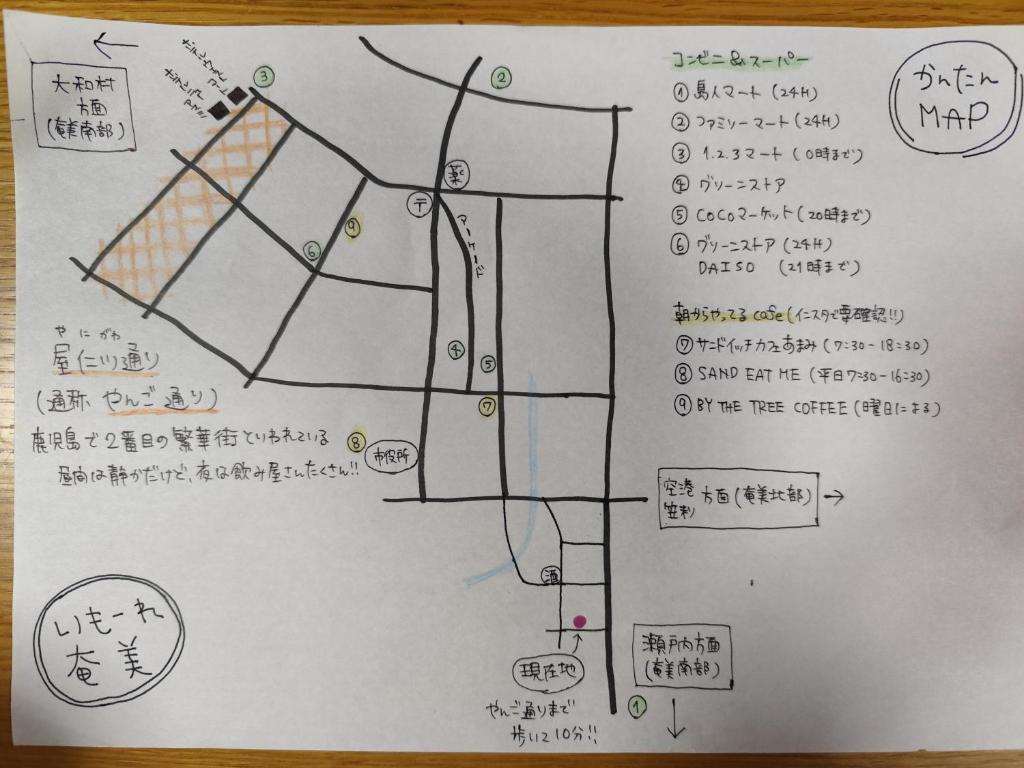 かんたん
MAP
大和村
方面
(奄美南部)
コンビニ&スーパー
① 島人マート (24H)
② ファミリーマート (24H)
③ 1.2.3マート (0時まで)
④ グリーンストア
⑤ COCOマーケット (20時まで)
⑥ グリーンストア (24H)
DAISO (21時まで)
朝からやってるcafe(インスタで要確認!!)
⑦ サンドイッチカフェあまみ (7:30-18:30)
⑧ SAND EAT ME (平日7:30-16:30)
⑨ BY THE TREE COFFEE (曜日による)
③
②
薬
〒
アーケード
⑨
⑥
④
⑤
⑦
⑧
市役所
やにがわ
屋仁川通り
(通称 やんご通り)
鹿児島で2番目の繁華街といわれている
昼間は静かだけど、夜は飲み屋さんたくさん!!
空港
笠利
方面(奄美北部)
酒
現在地
やんご通りまで
歩いて10分!!
瀬戸内方面
(奄美南部)
①
いもーれ
奄美